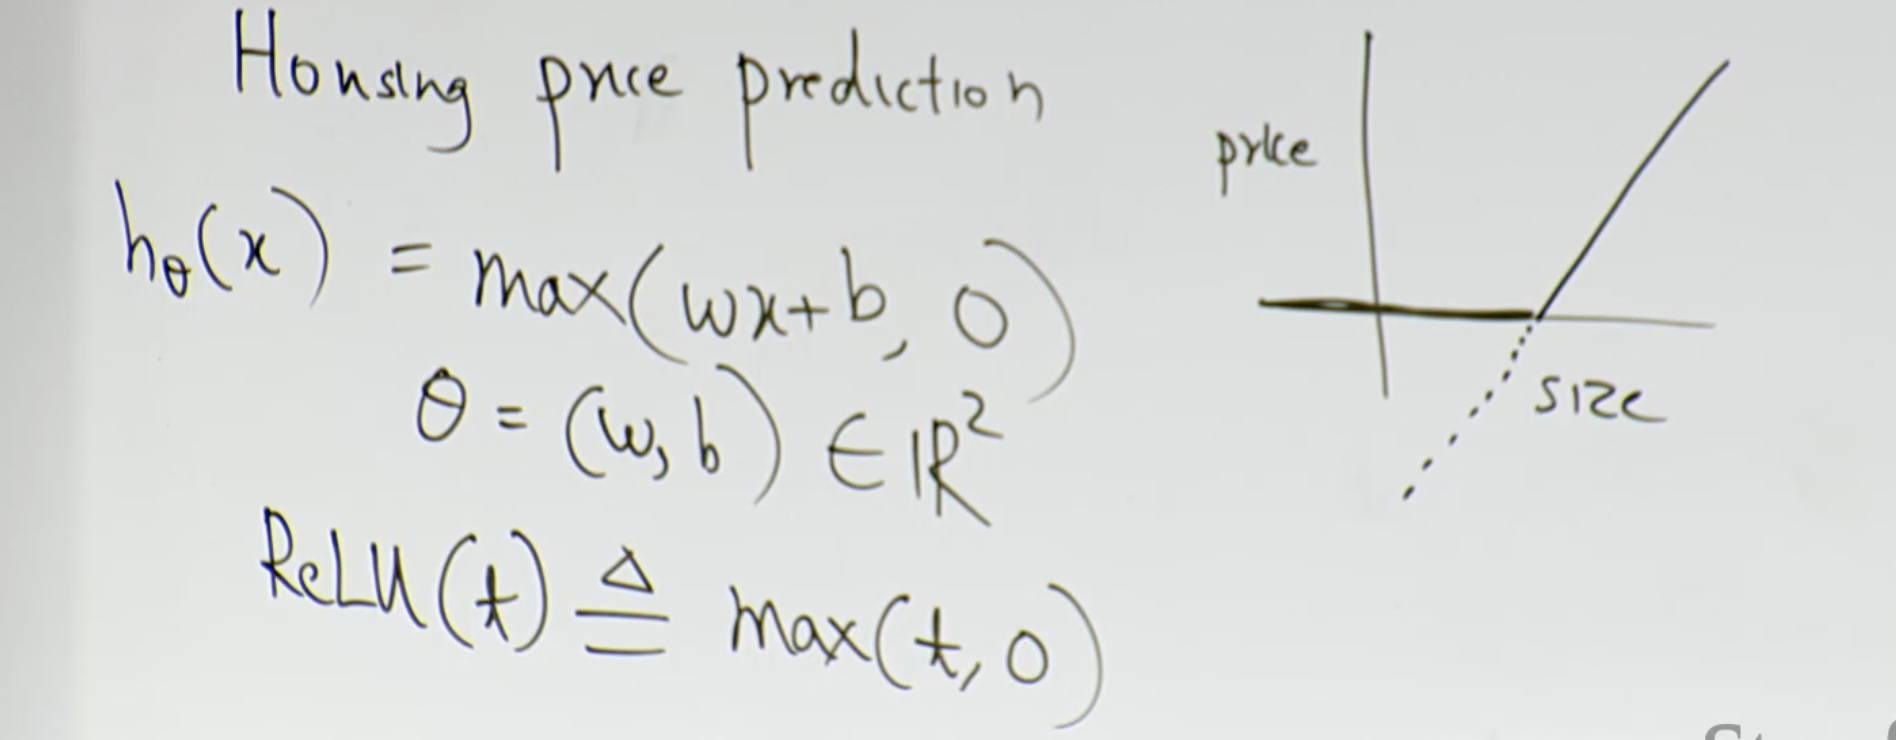 Housing price prediction
hθ(x) = max(wx+b, 0)
θ = (w, b) ∈ ℝ²
ReLU(t) ≜ max(t, 0)
price
size